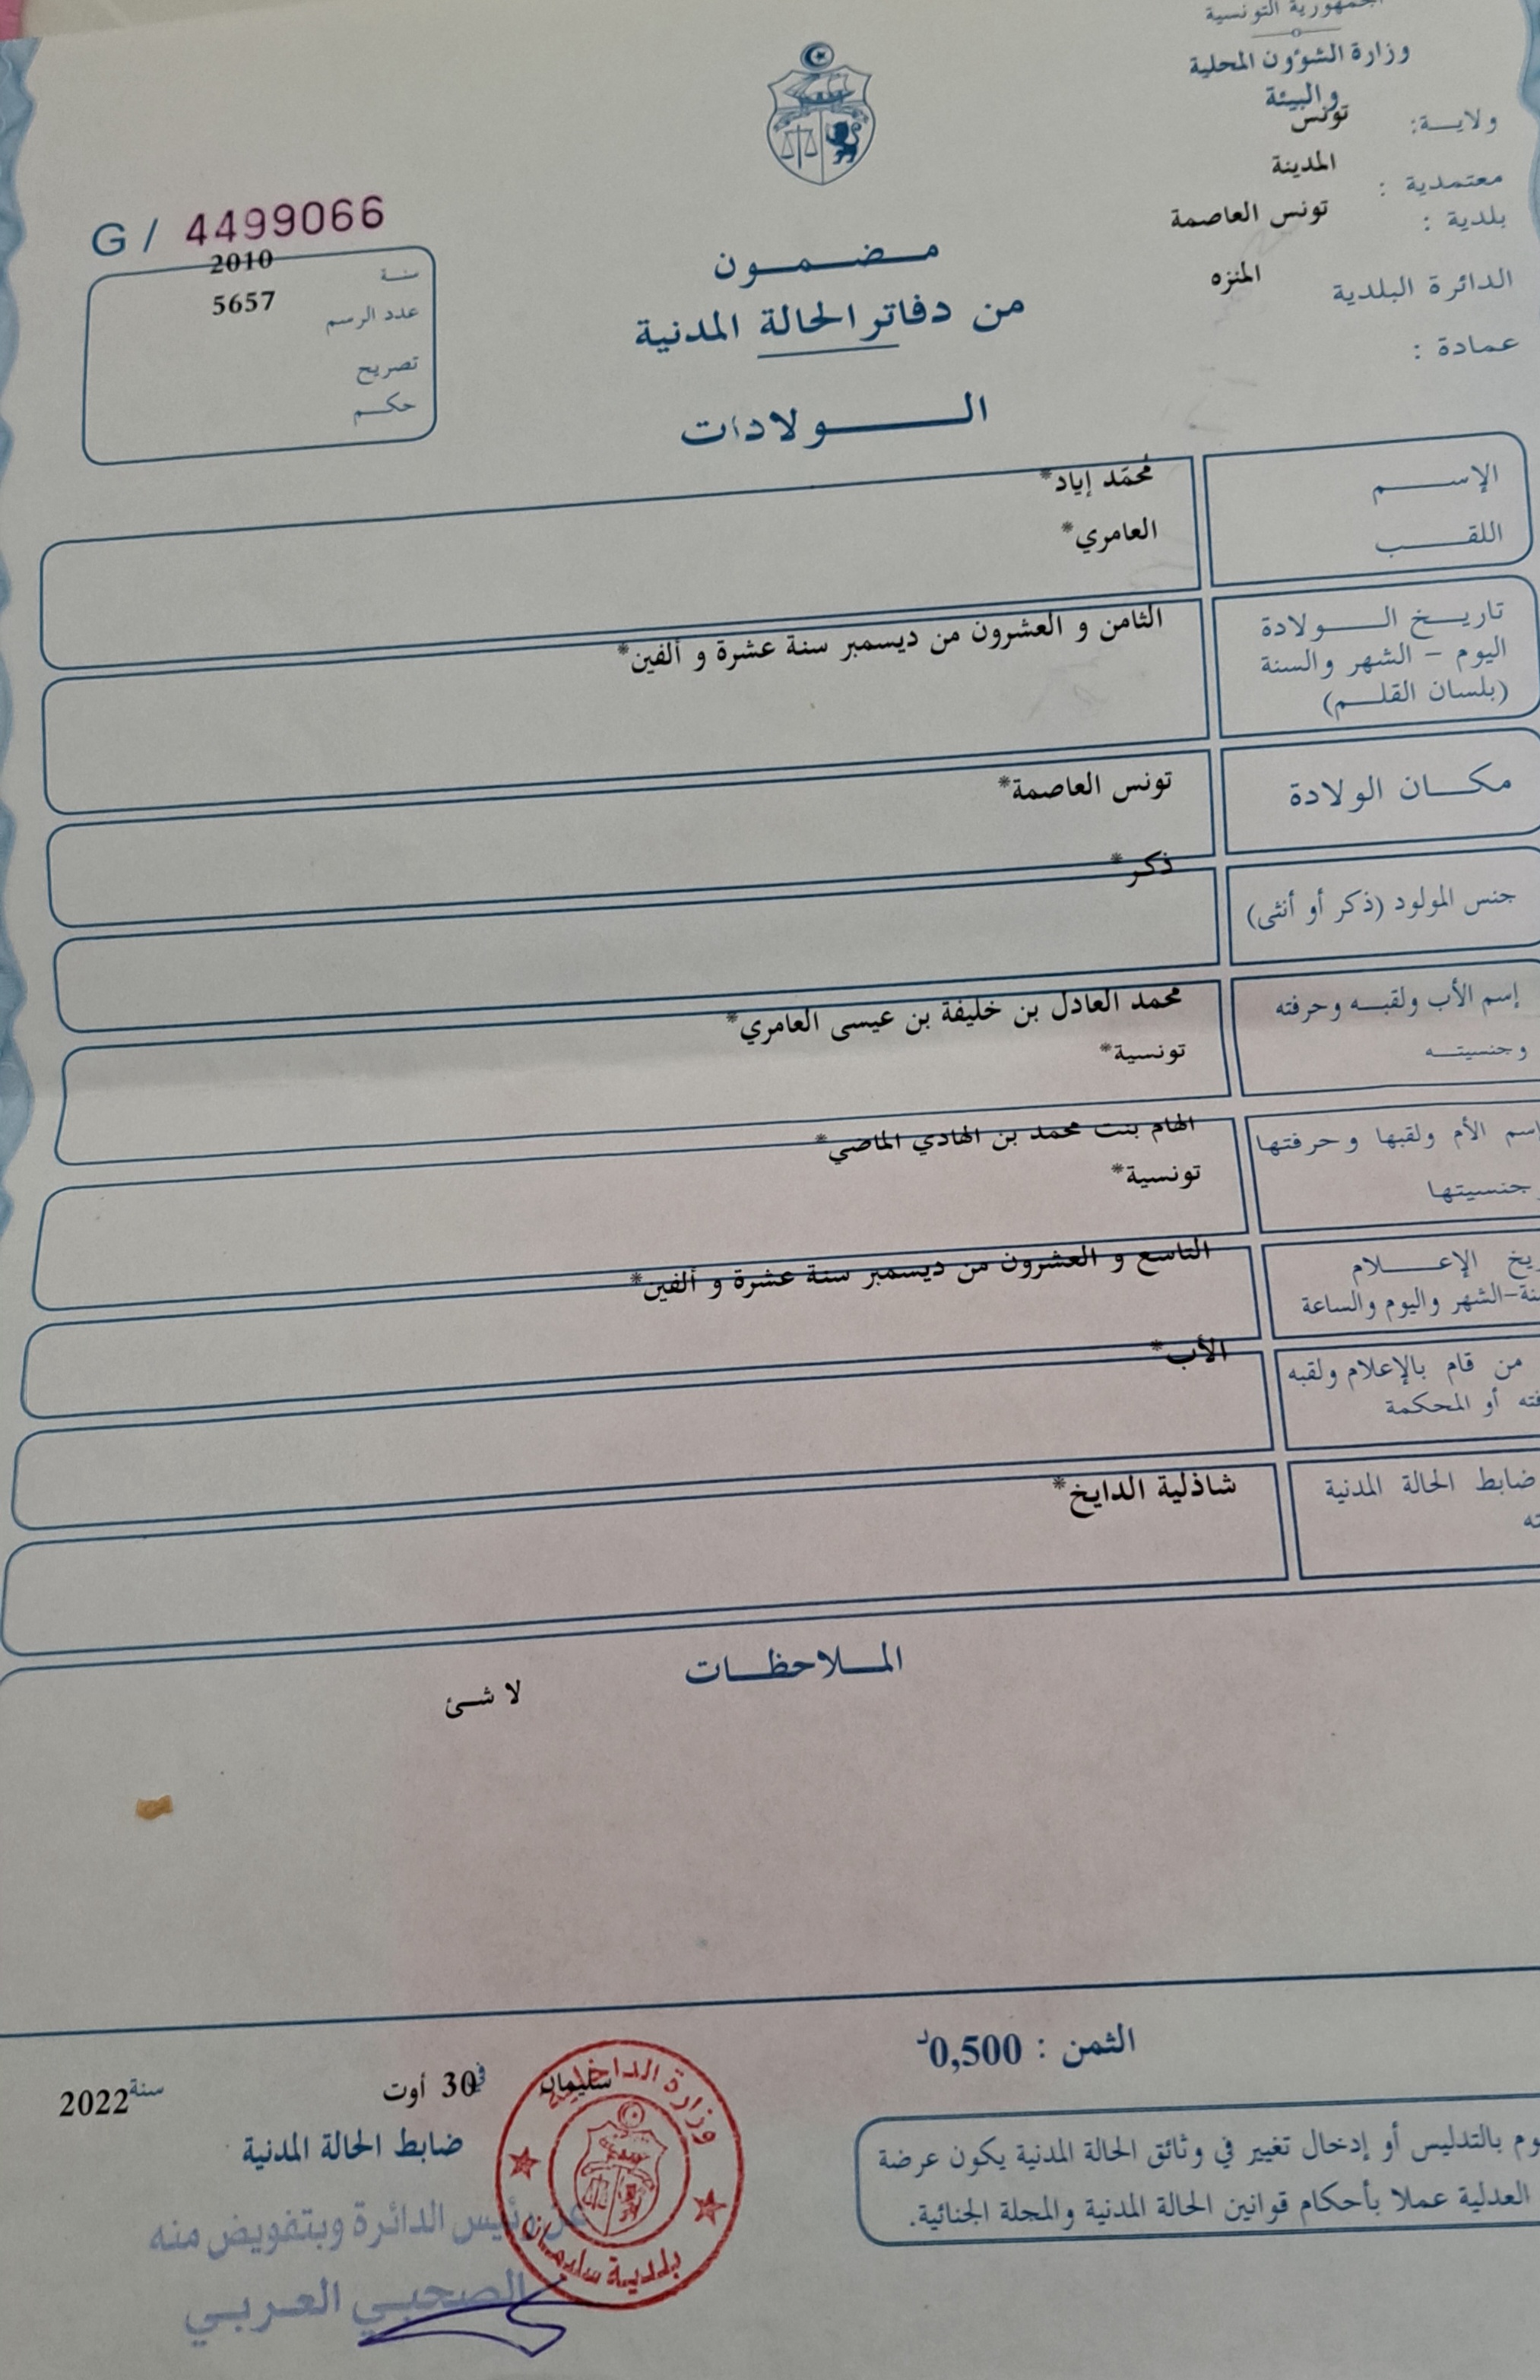 الجمهورية التونسية
وزارة الشؤون المحلية
والبيئة
ولايــة: تونس
معتمدية : المدينة
بلدية : تونس العاصمة
الدائرة البلدية المنزه
عمادة :
G / 4499066
سنة 2010
عدد الرسم 5657
تصريح
حكم
مضمون
من دفاتر الحالة المدنية
الولادات
الإسم محمّد إياد*
اللقب العامري*
تاريخ الولادة
اليوم – الشهر والسنة
(بلسان القلم)
الثامن و العشرون من ديسمبر سنة عشرة و ألفين*
مكان الولادة تونس العاصمة*
جنس المولود (ذكر أو أنثى) ذكر*
إسم الأب ولقبه وحرفته محمد العادل بن خليفة بن عيسى العامري*
وجنسيته تونسية*
اسم الأم ولقبها وحرفتها الهام بنت محمد بن الهادي الماضي*
جنسيتها تونسية*
الإعلام
الشهر واليوم والساعة
التاسع و العشرون من ديسمبر سنة عشرة و ألفين*
من قام بالإعلام ولقبه
أو المحكمة
الأب*
ضابط الحالة المدنية شاذلية الدايخ*
الملاحظات
لا شئ
الثمن : 0,500د
سليمان في 30 أوت سنة 2022
ضابط الحالة المدنية
عن رئيس الدائرة وبتفويض منه
الصحبي العربي
وزارة الداخلية
بلدية سليمان
بالتدليس أو إدخال تغيير في وثائق الحالة المدنية يكون عرضة
العدلية عملا بأحكام قوانين الحالة المدنية والمجلة الجنائية.